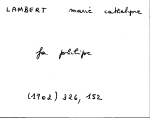 LAMBERT marie catherine
fa philipe
(1902) 326, 152